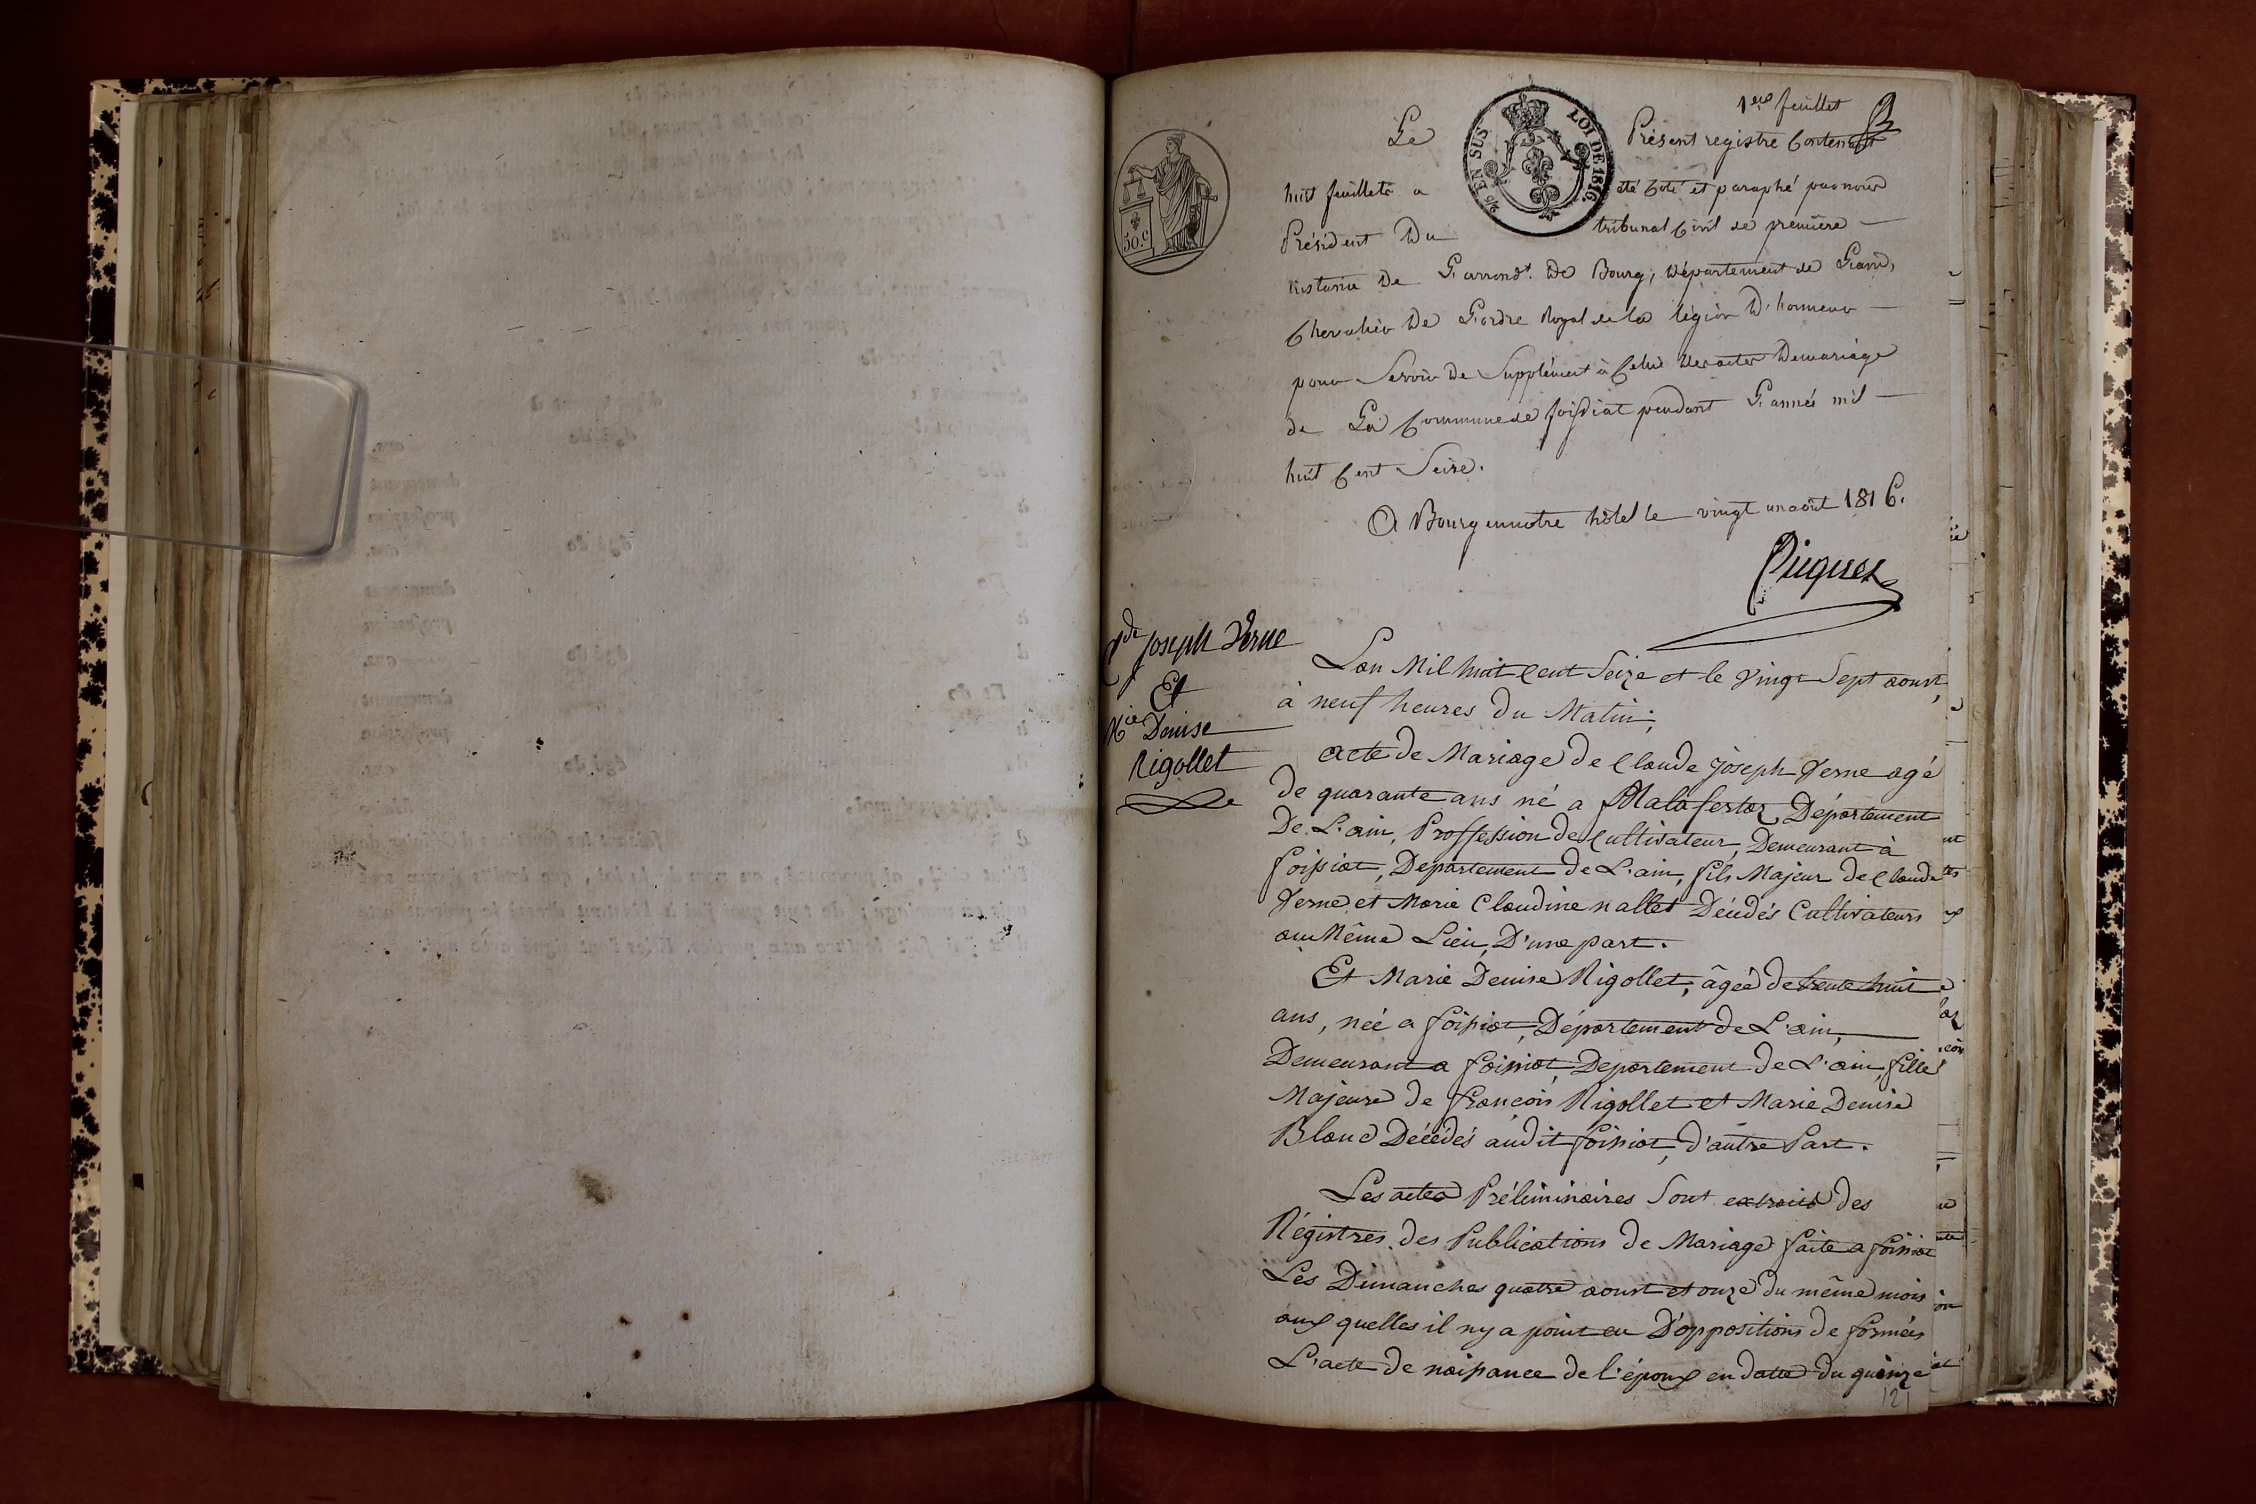 1ere feuillet
Le Présent registre Contenant
huit feuillets a été Coté et paraphé par nous
Président Du tribunal Civil de première
instance De L'arrondt. De Bourg, Département de L'ain,
Chevalier De L'ordre Royal de la légion D'honneur
pour Servir De Supplément à Celui des actes De mariage
de La Commune de foissiat pendant L'année mil
huit Cent Seize.
A Bourg en notre hôtel le vingt un août 1816.
2/5 EN SUS
LOI DE 1816.
50.c
Cde Joseph Verne
Et
Mie Denise
Rigollet
L'an Mil huit Cent Seize et le vingt Sept aoust,
à neuf heures du Matin;
acte de Mariage de Claude Joseph Verne agé
de quarante ans né a Malafertaz Département
De L'ain, Proffession de Cultivateur, Demeurant à
foissiat, Departement de L'ain, fils Majeur de Claude
Verne et Marie Claudine nallet Décédés Cultivateurs
au Même Lieu, D'une part.
Et Marie Denise Rigollet, âgée de trente huit
ans, née a foissiat, Département de L'ain,
Demeurant a foissiat, Departement de L'ain, fille
Majeure de françois Rigollet et Marie Denise
Blanc Décédés audit foissiat, d'autre Part.
Les actes Préliminaires Sont extraits des
Régistres des Publications de Mariage faite a foissiat
Les Dimanches quatre aoust et onze du même mois
aux quelles il ny a point eu D'oppositions de formées
L'acte de naissance de l'époux en datte du quinze
121